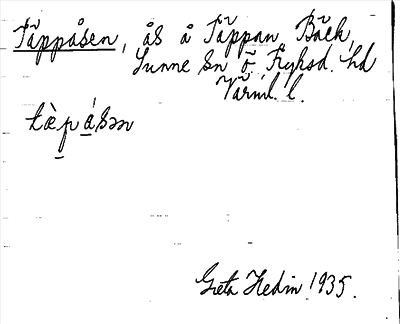 Täppåsen, ås å Täppan Bäck,
Sunne sn Ö Fryksd. hd
Värml. l.
tæ̀pásən
Greta Hedin 1935.